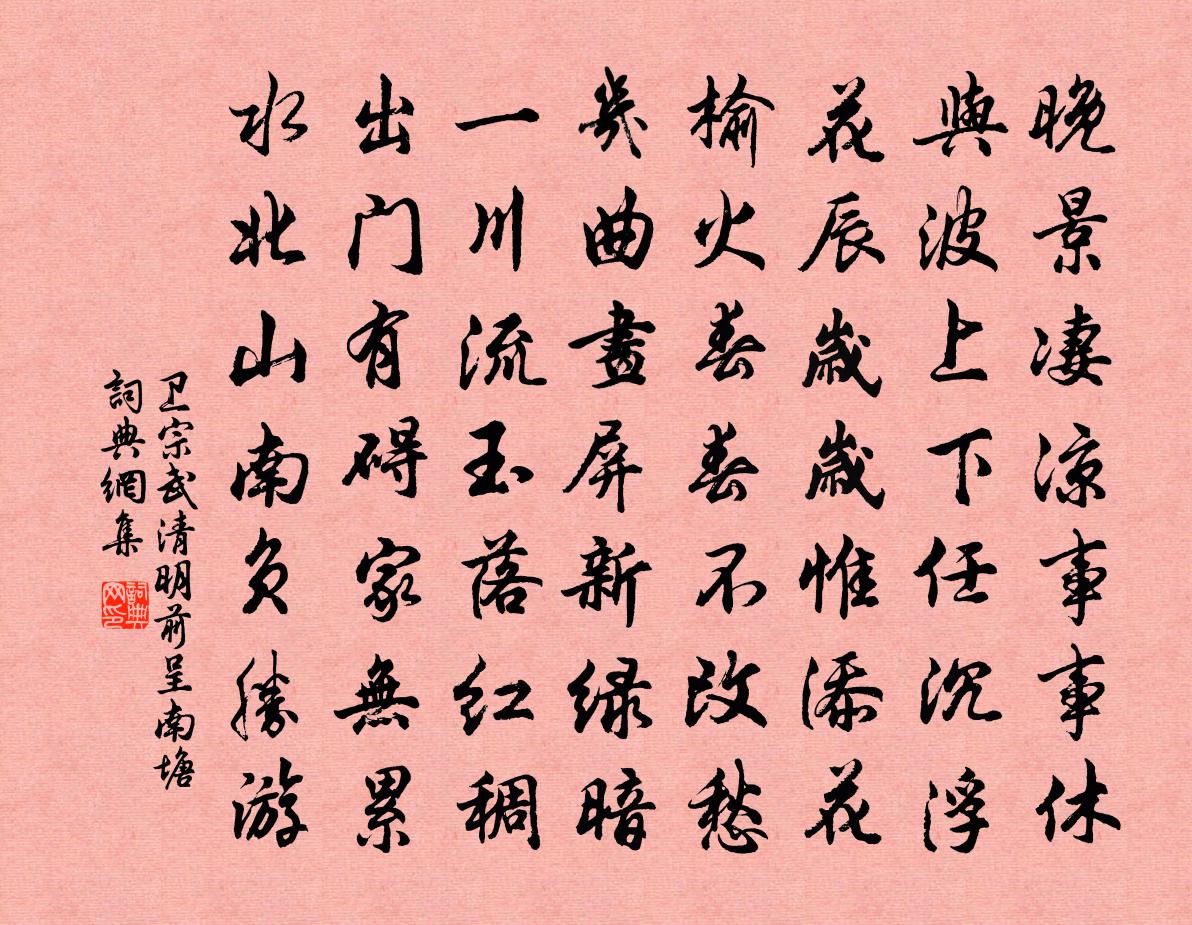 晚景凄凉事事休
與波上下任沉浮
花辰歲歲惟添花
榆火春春不改愁
幾曲畫屏新绿暗
一川流玉落红稠
出门有碍家無累
水北山南负勝游
卫宗武清明前呈南塘
詞典網集
詞典网印